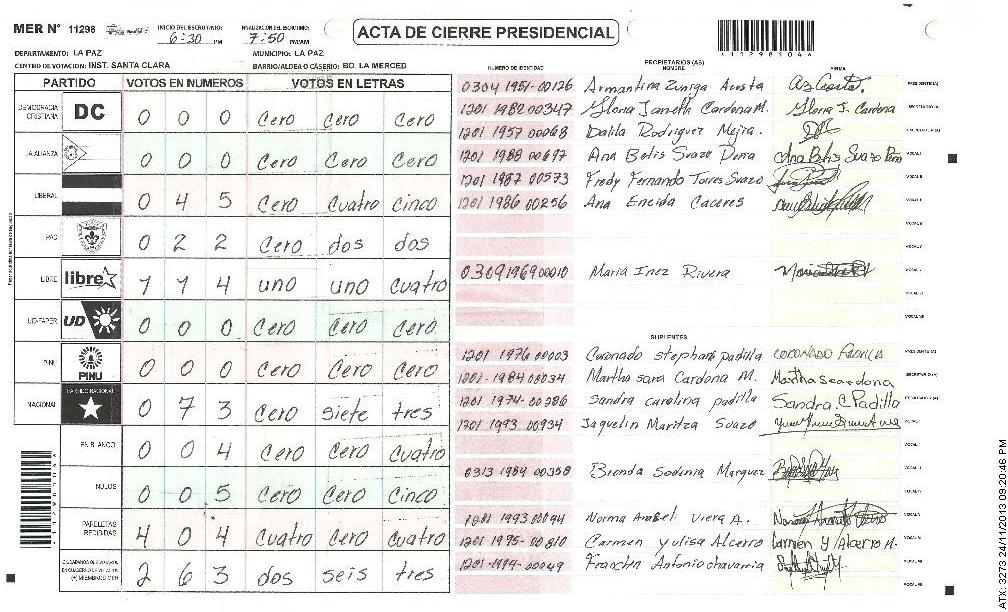 MER N° 11298
INICIO DEL ESCRUTINIO: 6:30 PM
FINALIZACIÓN DEL ESCRUTINIO: 7:50 PM/AM
ACTA DE CIERRE PRESIDENCIAL
11298104
DEPARTAMENTO: LA PAZ
MUNICIPIO: LA PAZ
CENTRO DE VOTACION: INST. SANTA CLARA
BARRIO/ALDEA O CASERIO: BO. LA MERCED
PARTIDO VOTOS EN NUMEROS VOTOS EN LETRAS
DEMOCRACIA CRISTIANA DC 0 0 0 Cero Cero Cero
LA ALIANZA 0 0 0 Cero Cero Cero
LIBERAL 0 4 5 Cero Cuatro Cinco
PAC 0 2 2 Cero dos dos
LIBRE libre 1 1 4 uno uno cuatro
UD-FAPER UD 0 0 0 Cero Cero Cero
PINU PINU 0 0 0 Cero Cero Cero
NACIONAL PARTIDO NACIONAL 0 7 3 Cero siete tres
EN BLANCO 0 0 4 Cero Cero cuatro
NULOS 0 0 5 Cero Cero Cinco
PAPELETAS RECIBIDAS 4 0 4 Cuatro Cero Cuatro
2 6 3 dos seis tres
PROPIETARIOS (AS)
NUMERO DE IDENTIDAD NOMBRE FIRMA
0304 1951-00126 Armantina Zuniga Acosta PRESIDENTE (A)
1201 1982 00347 Gloria Janeth Cardona M. Gloria J. Cardona SECRETARIO (A)
1201 1957 00068 Dalila Rodriguez Mejia.
1201 1988 00697 Ana Belis Suazo Ana Belis Suazo
1201 1987 00573 Fredy Fernando Torres Suazo
1201 1986 00256 Ana Encida Caceres
0309 1969 00010 Maria Inez Rivera
SUPLENTES
1201 1976 00003 Coronado stephan padilla CORONADO PADILLA PRESIDENTE (A)
1201-1984 00034 Martha sara Cardona M. SECRETARIO (A)
1201 1974-00286 Sandra carolina padilla Sandra C. Padilla
1201 1993 00934 Jaquelin Maritza Suazo
0313 1984 00358 Marquez
1201 1993 00094 Norma Viera A.
1201-1995-00810 Carmen Yulisa Alcerro Carmen Y Alcerro M.
1201-1994-00049 Antonio chavarria
ATX-3273 24/11/2013 09:20:46 PM